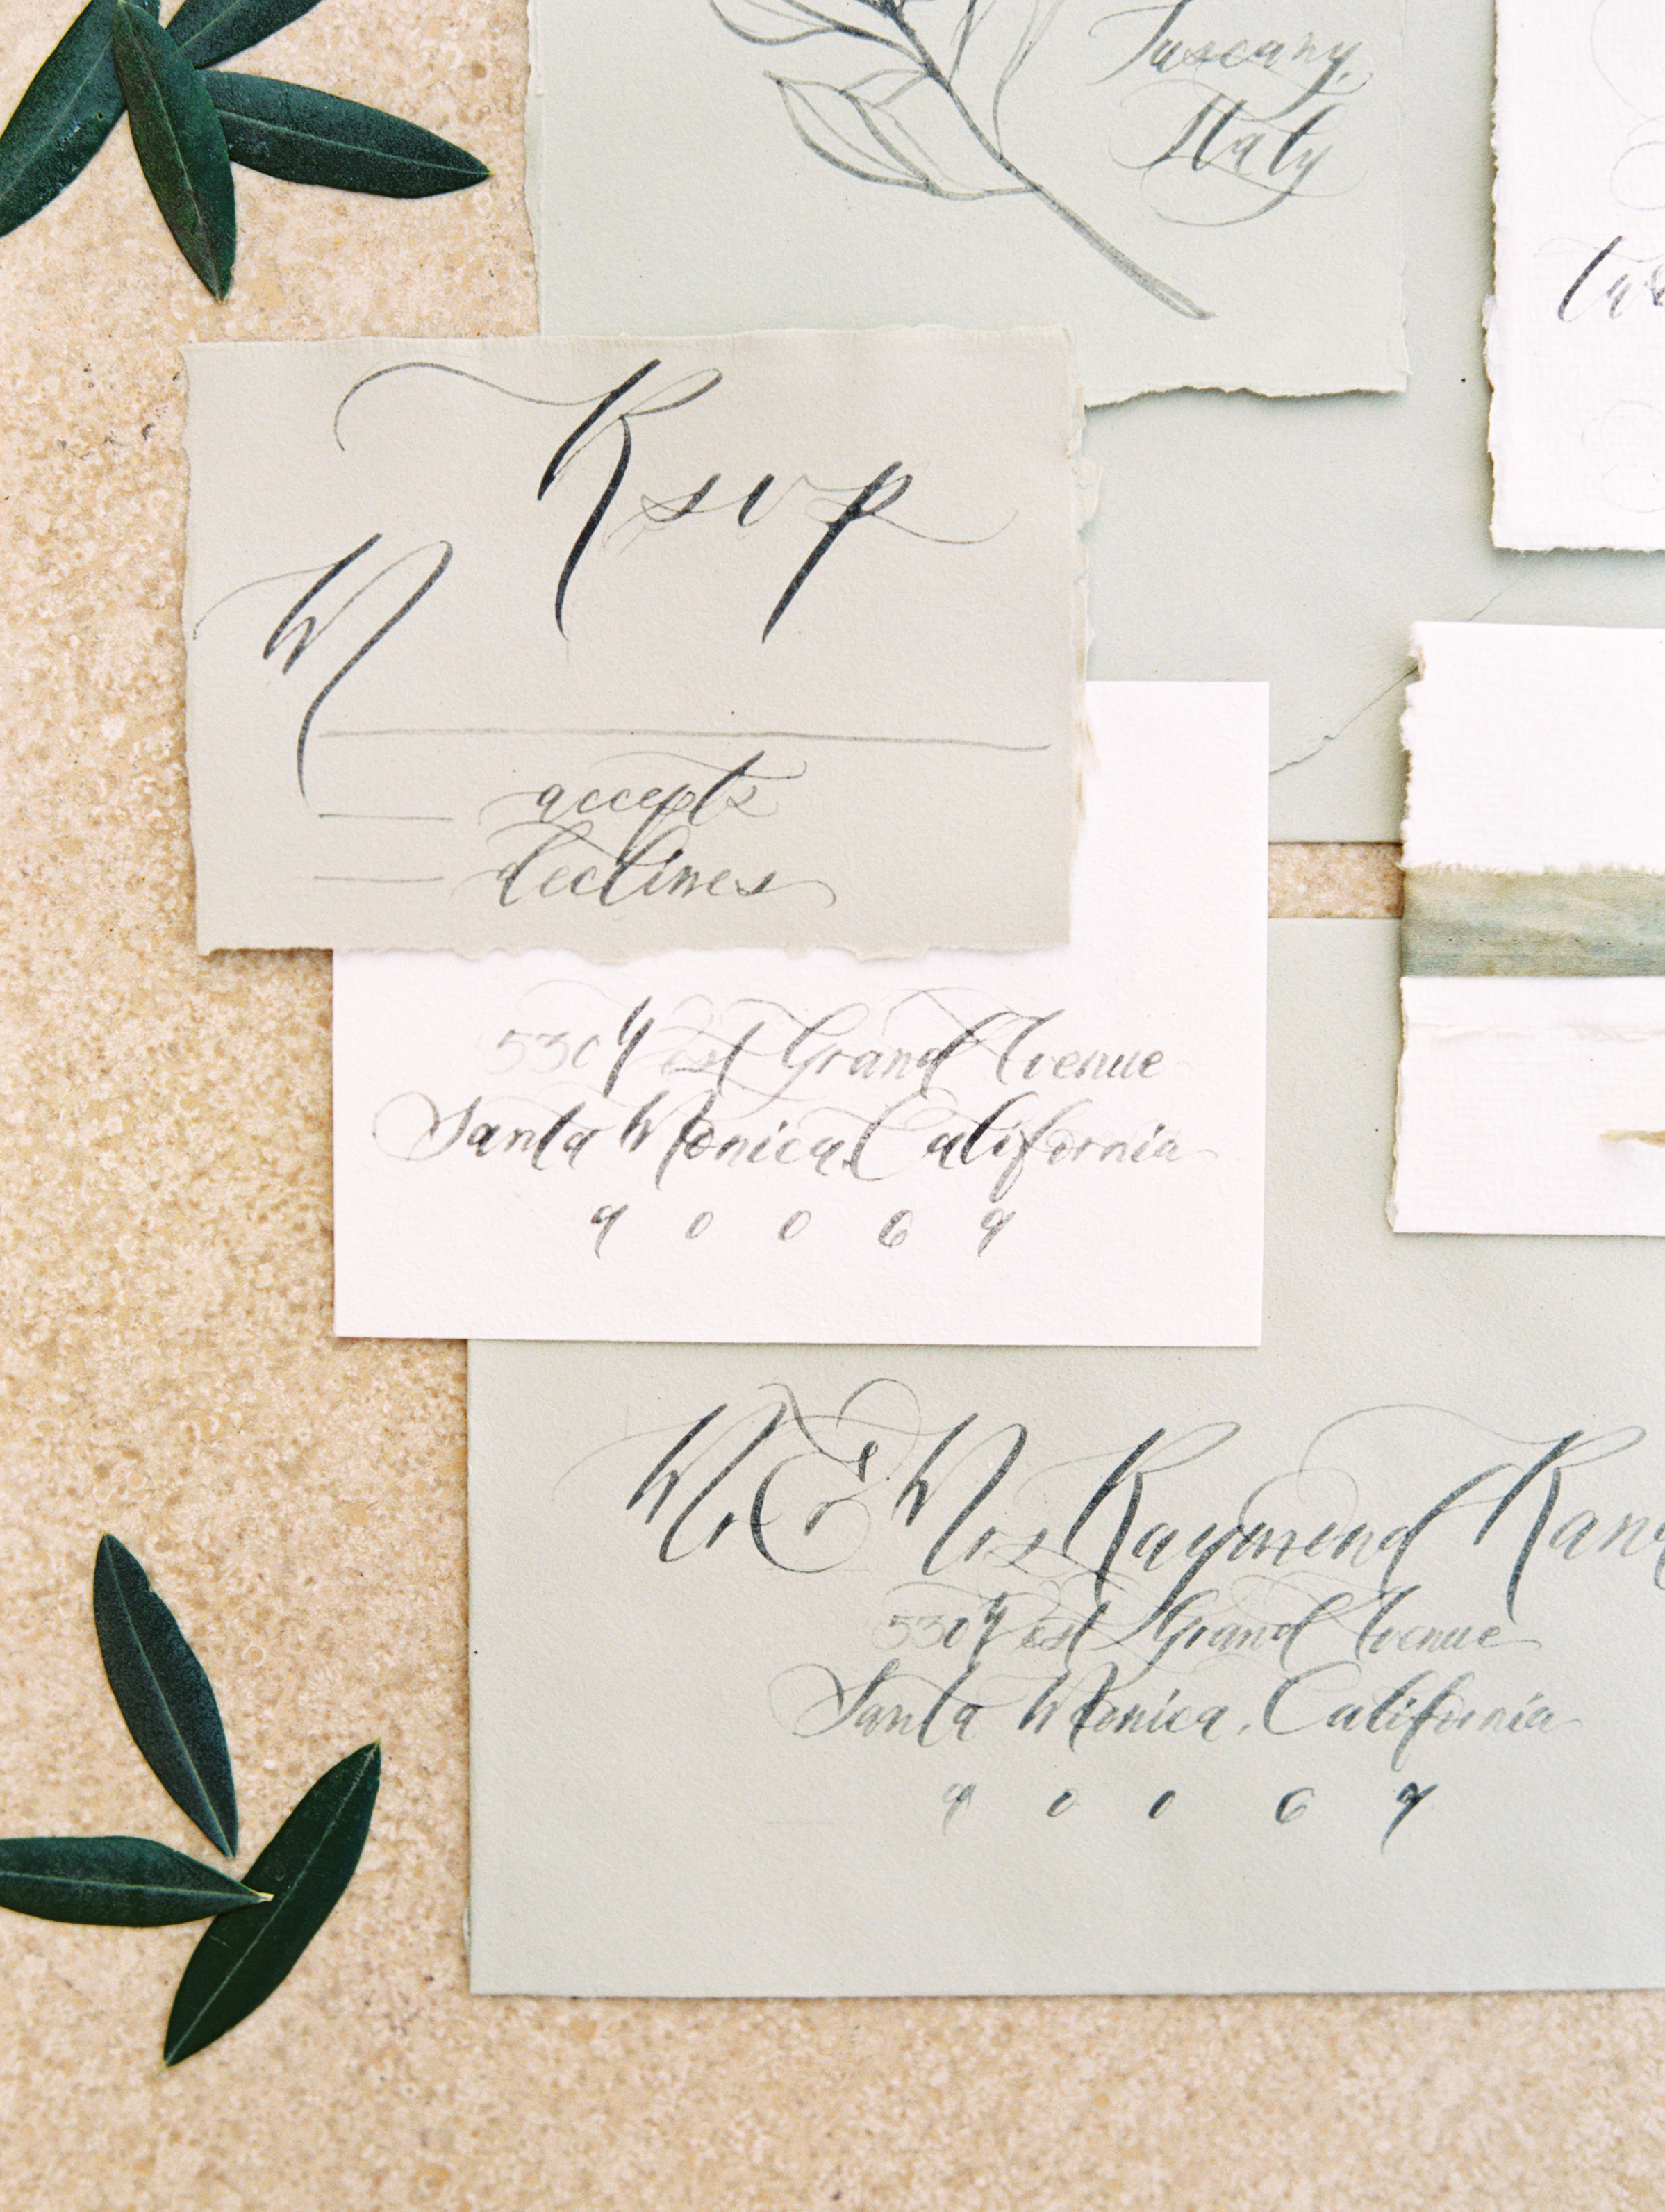 Tuscany,
Italy
Rsvp
M
accepts
declines
530 West Grand Avenue
Santa Monica, California
90069
Mr & Mrs Raymond
530 West Grand Avenue
Santa Monica, California
90069